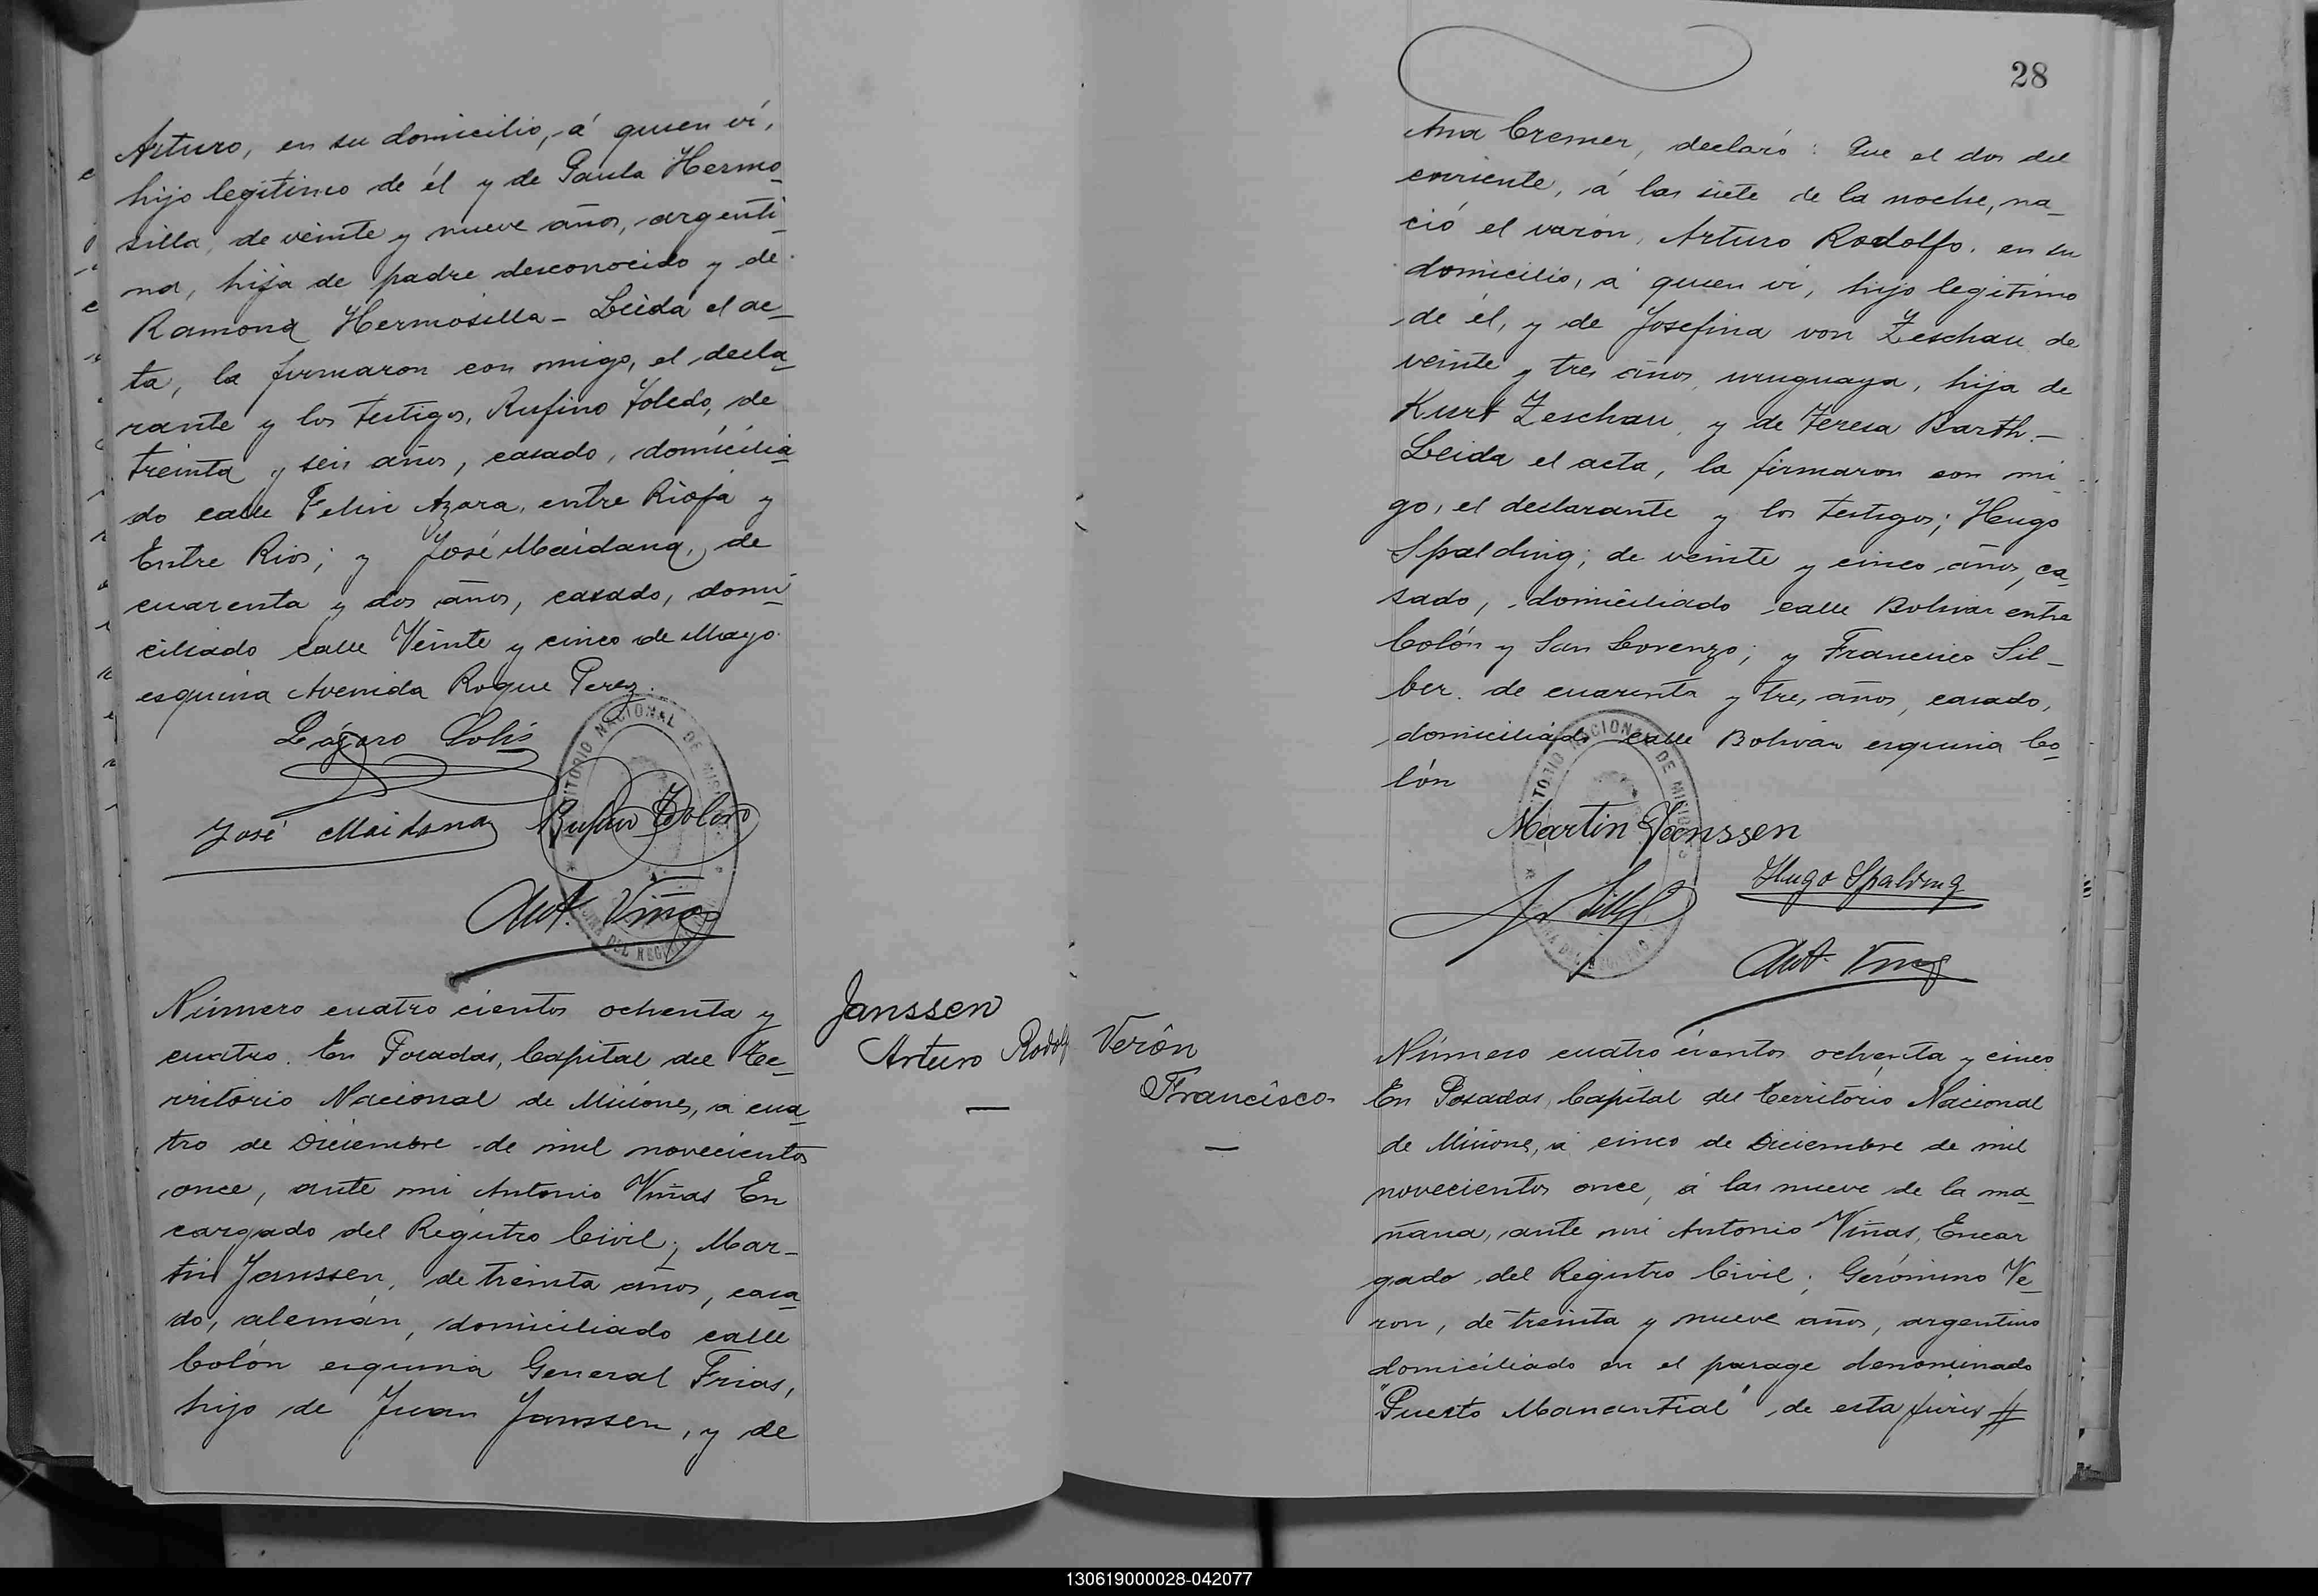 Arturo, en su domicilio, á quien ví,
hijo legítimo de él y de Paula Hermo_
silla, de veinte y nueve años, argenti_
na, hija de padre desconocido y de
Ramona Hermosilla - Leída el ac_
ta, la firmaron con migo, el decla_
rante y los testigos, Rufino Toledo, de
treinta y seis años, casado, domicilia_
do calle Felix Azara, entre Rioja y
Entre Rios; y José Maidana, de
cuarenta y dos años, casado, domi_
ciliado calle Veinte y cinco de Mayo
esquina Avenida Roque Perez.
Lázaro Solis
José Maidana Rufino Toledo
Ant. Viñas
TERRITORIO NACIONAL DE MISIONES
Número cuatro cientos ochenta y
cuatro. En Posadas, Capital del Te_
rritorio Nacional de Misiones, a cua_
tro de Diciembre de mil novecientos
once, ante mi Antonio Viñas En
cargado del Registro Civil; Mar_
tin Janssen, de treinta años, casa_
do, alemán, domiciliado calle
Colón esquina General Frias,
hijo de Juan Janssen, y de
Janssen
Arturo Rodolf
28
Ana Cremer, declaró: Que el dos del
corriente, á las siete de la noche, na_
ció el varón, Arturo Rodolfo, en su
domicilio, á quien ví, hijo legítimo
de él, y de Josefina von Zeschau de
veinte y tres años, uruguaya, hija de
Kurt Zeschau, y de Teresa Barth. -
Leida el acta, la firmaron con mi_
go, el declarante y los testigos; Hugo
Spalding; de veinte y cinco años, ca_
sado, domiciliado calle Bolivar entre
Colón y San Lorenzo; y Francisco Sil_
ber. de cuarenta y tres años, casado,
domiciliado calle Bolivar esquina Co_
lón
TORIO NACIONAL DE MISIONES
Martin Janssen
Hugo Spalding
Ant. Viñas
Verón
Francisco.
Número cuatro cientos ochenta y cinco.
En Posadas, Capital del Territorio Nacional
de Misiones, á cinco de Diciembre de mil
novecientos once, á las nueve de la ma_
ñana, ante mi Antonio Viñas, Encar
gado del Registro Civil; Gerónimo Ve_
ron, de treinta y nueve años, argentino
domiciliado en el parage denominado
"Puerto Manantial", de esta juris #
130619000028-042077